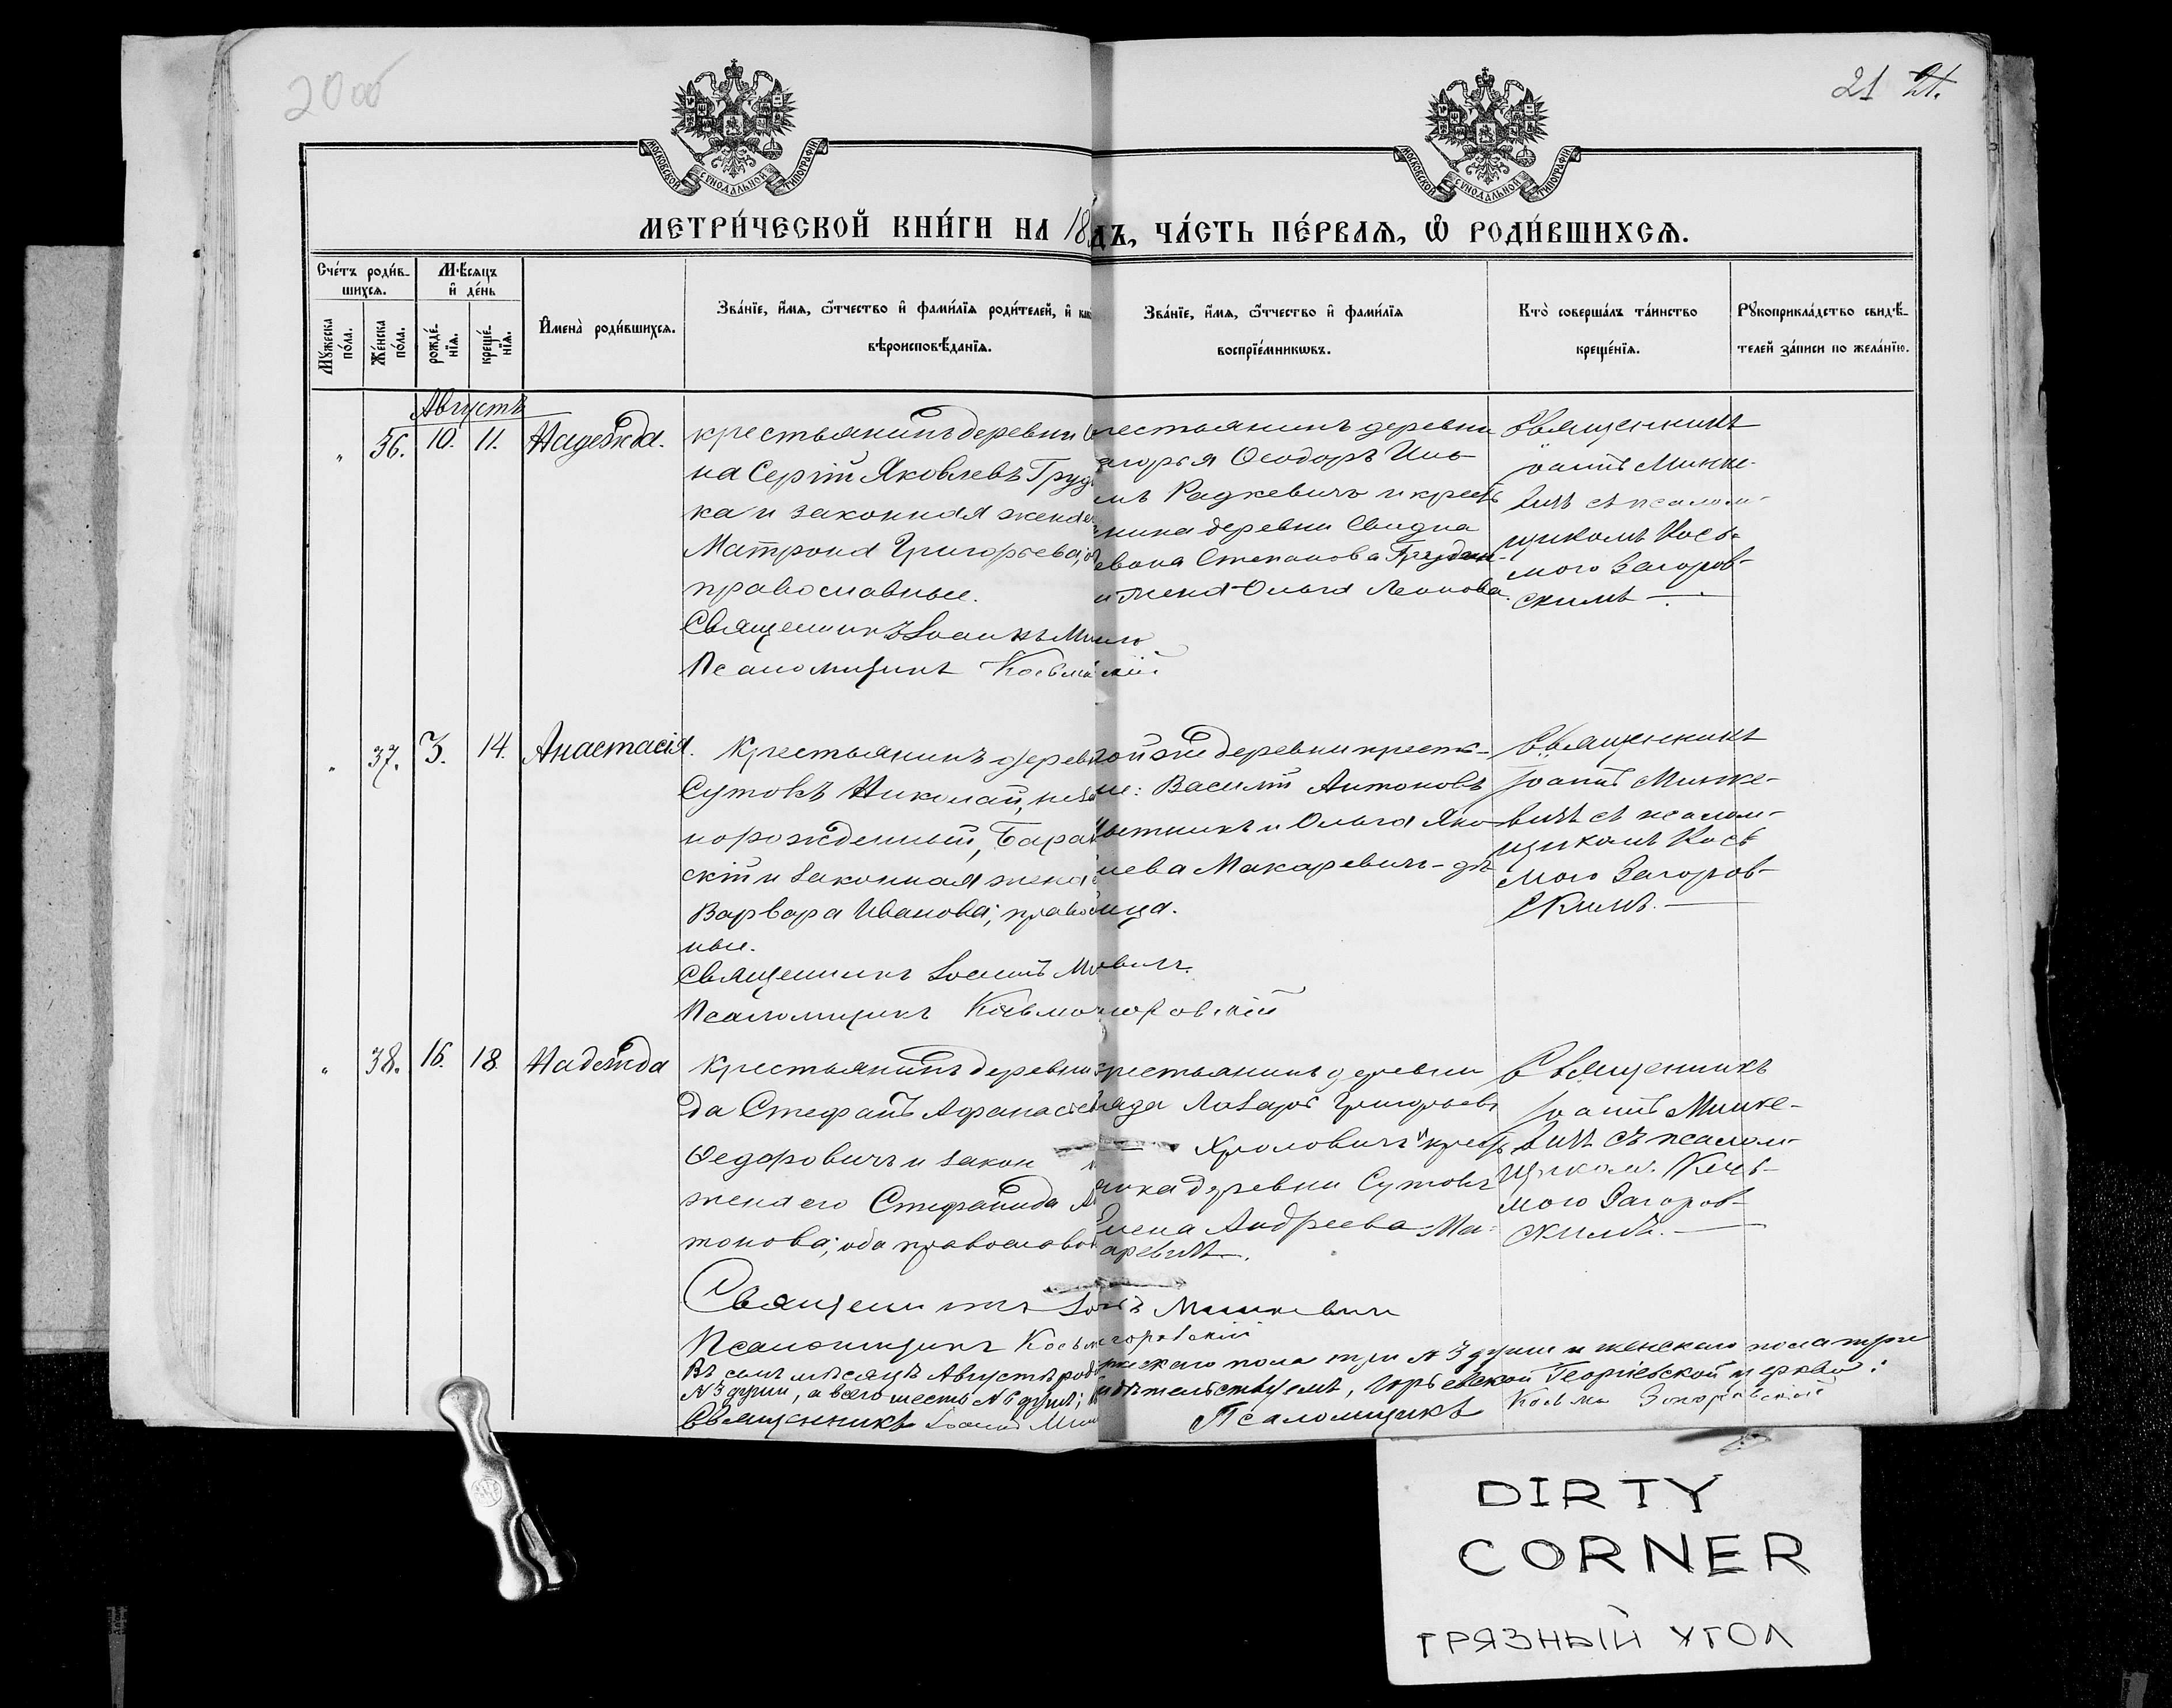 20 об
21 21.
МОСКОВСКОЙ СѴНОДАЛЬНОЙ ТИПОГРАФІИ
МОСКОВСКОЙ СѴНОДАЛЬНОЙ ТИПОГРАФІИ
МЕТРИ́ЧЕСКОЙ КНИ́ГИ НА 18 ДЪ, ЧА́СТЬ ПЕ́РВАѦ, Ѡ҆ РОДИ́ВШИХСѦ.
Сче́тъ роди́в-
шихсѧ.
Мѣ́сѧцъ
и҆ де́нь
Мꙋ́жеска
по́ла.
Же́нска
по́ла.
рожде́-
нїѧ.
креще́-
нїѧ.
И҆мена̀ роди́вшихсѧ.
Зва́нїе, и҆́мѧ, ѻ҆́тчество и҆ фами́лїѧ роди́телей, и҆ как
вѣроисповѣ́данїѧ.
Зва́нїе, и҆́мѧ, ѻ҆́тчество и҆ фами́лїѧ
воспрїе́мникѡвъ.
Кто̀ соверша́лъ та́инство
креще́нїѧ.
Рꙋкоприкла́дство свидѣ́-
телей за́писи по жела́нїю.
Августъ
„ 36. 10. 11. Надежда.
крестьянинъ деревни С
на Сергій Яковлевъ Груд
ка и законная жена е
Матрона Григорьева, об
православные.
Священникъ Іоаннъ Ми
Псаломщикъ Косьма
рестьянинъ деревни
агорья Ѳеодоръ Иль
мъ Радкевичъ и крестъ
нина деревни Свидна
Степанова Грудин-
и жена Ольга Леонова.
Священникъ
Іоаннъ Минке-
вичъ съ псалом-
щикомъ Кось-
мою Загоров-
скимъ —.
„ 37. 3. 14. Анастасія.
Крестьянинъ дерев
Сутокъ Николай, неза
норожденный, Бара
скій и законная жена
Варвара Иванова; право
ные.
Священникъ Іоаннъ Ми
вичъ.
Псаломщикъ Косьма
горовскій
той же деревни кресть-
не: Василій Антоновъ
ытникъ и Ольга Яко-
лева Макаревичъ - дѣ
ица.
Священникъ
Іоаннъ Минке-
вичъ съ псалом-
щикомъ Кось-
мою Загоров-
скимъ. —
„ 38. 16. 18. Надежда
крестьянинъ деревни
да Стефанъ Аѳанасіев
Ѳедоровичъ и закон
жена его Стефанида А
тонова; оба православ
Священникъ Іо
ъ Минкевичъ
Псаломщикъ Косьм
горовскій
рестьянинъ деревни
яда Лазарь Григорьевъ
Хроловичъ и крестъ
янка деревни Сутокъ
Елена Андреева Ма-
каревичъ.
Священникъ
Іоаннъ Минке-
вичъ съ псалом-
щикомъ Кось-
мою Загоров-
скимъ. —
Въ семъ мѣсяцѣ Августѣ роди
мужскаго пола три № 3 души и женскаго пола три
№ 3 души, а всего шесть № 6 душъ;
идѣтельствуемъ, Георгіевской церкви:
Священникъ Іоаннъ Мин
Псаломщикъ Косьма Загоровскій
DIRTY
CORNER
ГРЯЗНЫЙ УГОЛ